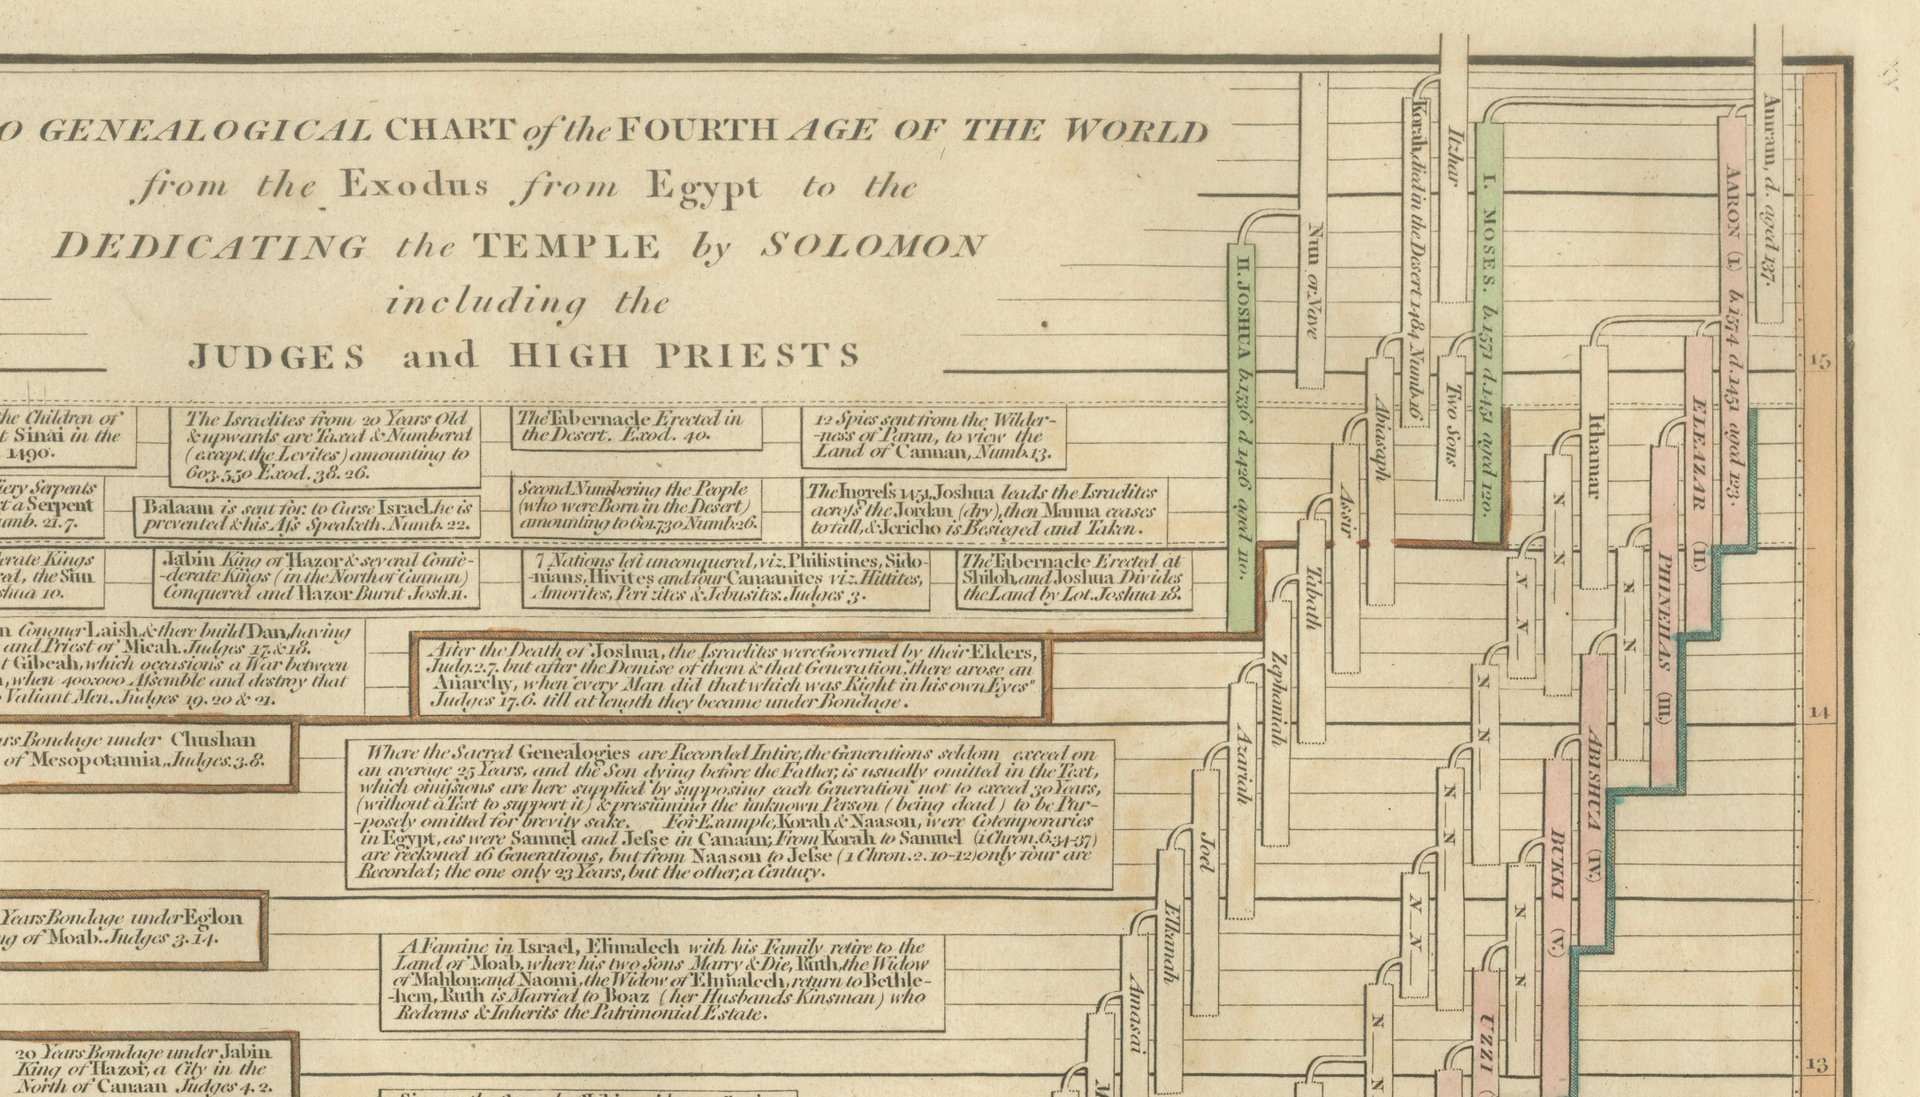 O GENEALOGICAL CHART of the FOURTH AGE OF THE WORLD
from the Exodus from Egypt to the
DEDICATING the TEMPLE by SOLOMON
including the
JUDGES and HIGH PRIESTS
the Children of
t Sinai in the
1490.
The Israelites from 20 Years Old
& upwards are Taxed & Numbered
(except the Levites) amounting to
603,550 Exod. 38. 26.
The Tabernacle Erected in
the Desert. Exod. 40.
12 Spies sent from the Wilder-
-ness of Paran, to view the
Land of Canaan, Numb. 13.
iery Serpents
t a Serpent
umb. 21. 7.
Balaam is sent for to Curse Israel, he is
prevented & his Ass Speaketh. Numb. 22.
Second Numbering the People
(who were Born in the Desert)
amounting to 601,730 Numb. 26.
The Ingress 1451, Joshua leads the Israelites
across the Jordan (dry), then Manna ceases
to fall, & Jericho is Besieged and Taken.
derate Kings
red, the Sun
shua 10.
Jabin King of Hazor & several Confe-
-derate Kings (in the North of Canaan)
Conquered and Hazor Burnt Josh. 11.
7 Nations left unconquered, viz. Philistines, Sido-
-nians, Hivites and four Canaanites viz. Hittites,
Amorites, Perizites & Jebusites. Judges 3.
The Tabernacle Erected at
Shiloh, and Joshua Divides
the Land by Lot. Joshua 18.
n Conquer Laish, & there build Dan, having
and Priest of Micah. Judges 17. & 18.
t Gibeah, which occasions a War between
, when 400,000 Assemble and destroy that
Valiant Men. Judges 19. 20 & 21.
After the Death of Joshua, the Israelites were Governed by their Elders,
Judg. 2. 7. but after the Demise of them & that Generation, there arose an
Anarchy, when "every Man did that which was Right in his own Eyes"
Judges 17. 6. till at length they became under Bondage.
rs Bondage under Chushan
of Mesopotamia, Judges. 3. 8.
Where the Sacred Genealogies are Recorded Intire, the Generations seldom exceed on
an average 25 Years, and the Son dying before the Father, is usually omitted in the Text,
which omissions are here supplied by supposing each Generation not to exceed 30 Years,
(without a Text to support it) & presuming the unknown Person (being dead) to be Pur-
-posely omitted for brevity sake. For Example, Korah & Naason, were Cotemporaries
in Egypt, as were Samuel and Jesse in Canaan; From Korah to Samuel (1 Chron. 6. 34-37)
are reckoned 16 Generations, but from Naason to Jesse (1 Chron. 2. 10-12) only four are
Recorded; the one only 23 Years, but the other, a Century.
Years Bondage under Eglon
ng of Moab. Judges 3. 14.
A Famine in Israel, Elimalech with his Family retire to the
Land of Moab, where his two Sons Marry & Die, Ruth, the Widow
of Mahlon, and Naomi, the Widow of Elmalech, return to Bethle-
-hem, Ruth is Married to Boaz (her Husbands Kinsman) who
Redeems & Inherits the Patrimonial Estate.
20 Years Bondage under Jabin
King of Hazor, a City in the
North of Canaan Judges 4. 2.
II. JOSHUA b. 1536 d. 1426 aged 110.
Nun or Nave
Korah, died in the Desert 1484 Numb. 16
Itzhar
I. MOSES. b. 1571 d. 1451 aged 120.
AARON (I.) b. 1574 d. 1451 aged 123.
Amram, d. aged 137.
Abiasaph
Two Sons
Ithamar
ELEAZAR (II.)
Assir
N N
PHINEHAS (III.)
Tahath
N N
N N
Zephaniah
N N
ABISHUA (IV.)
Azariah
N N
BUKKI (V.)
Joel
N N
N N
Elkanah
N N
UZZI
Amasai
15
14
13